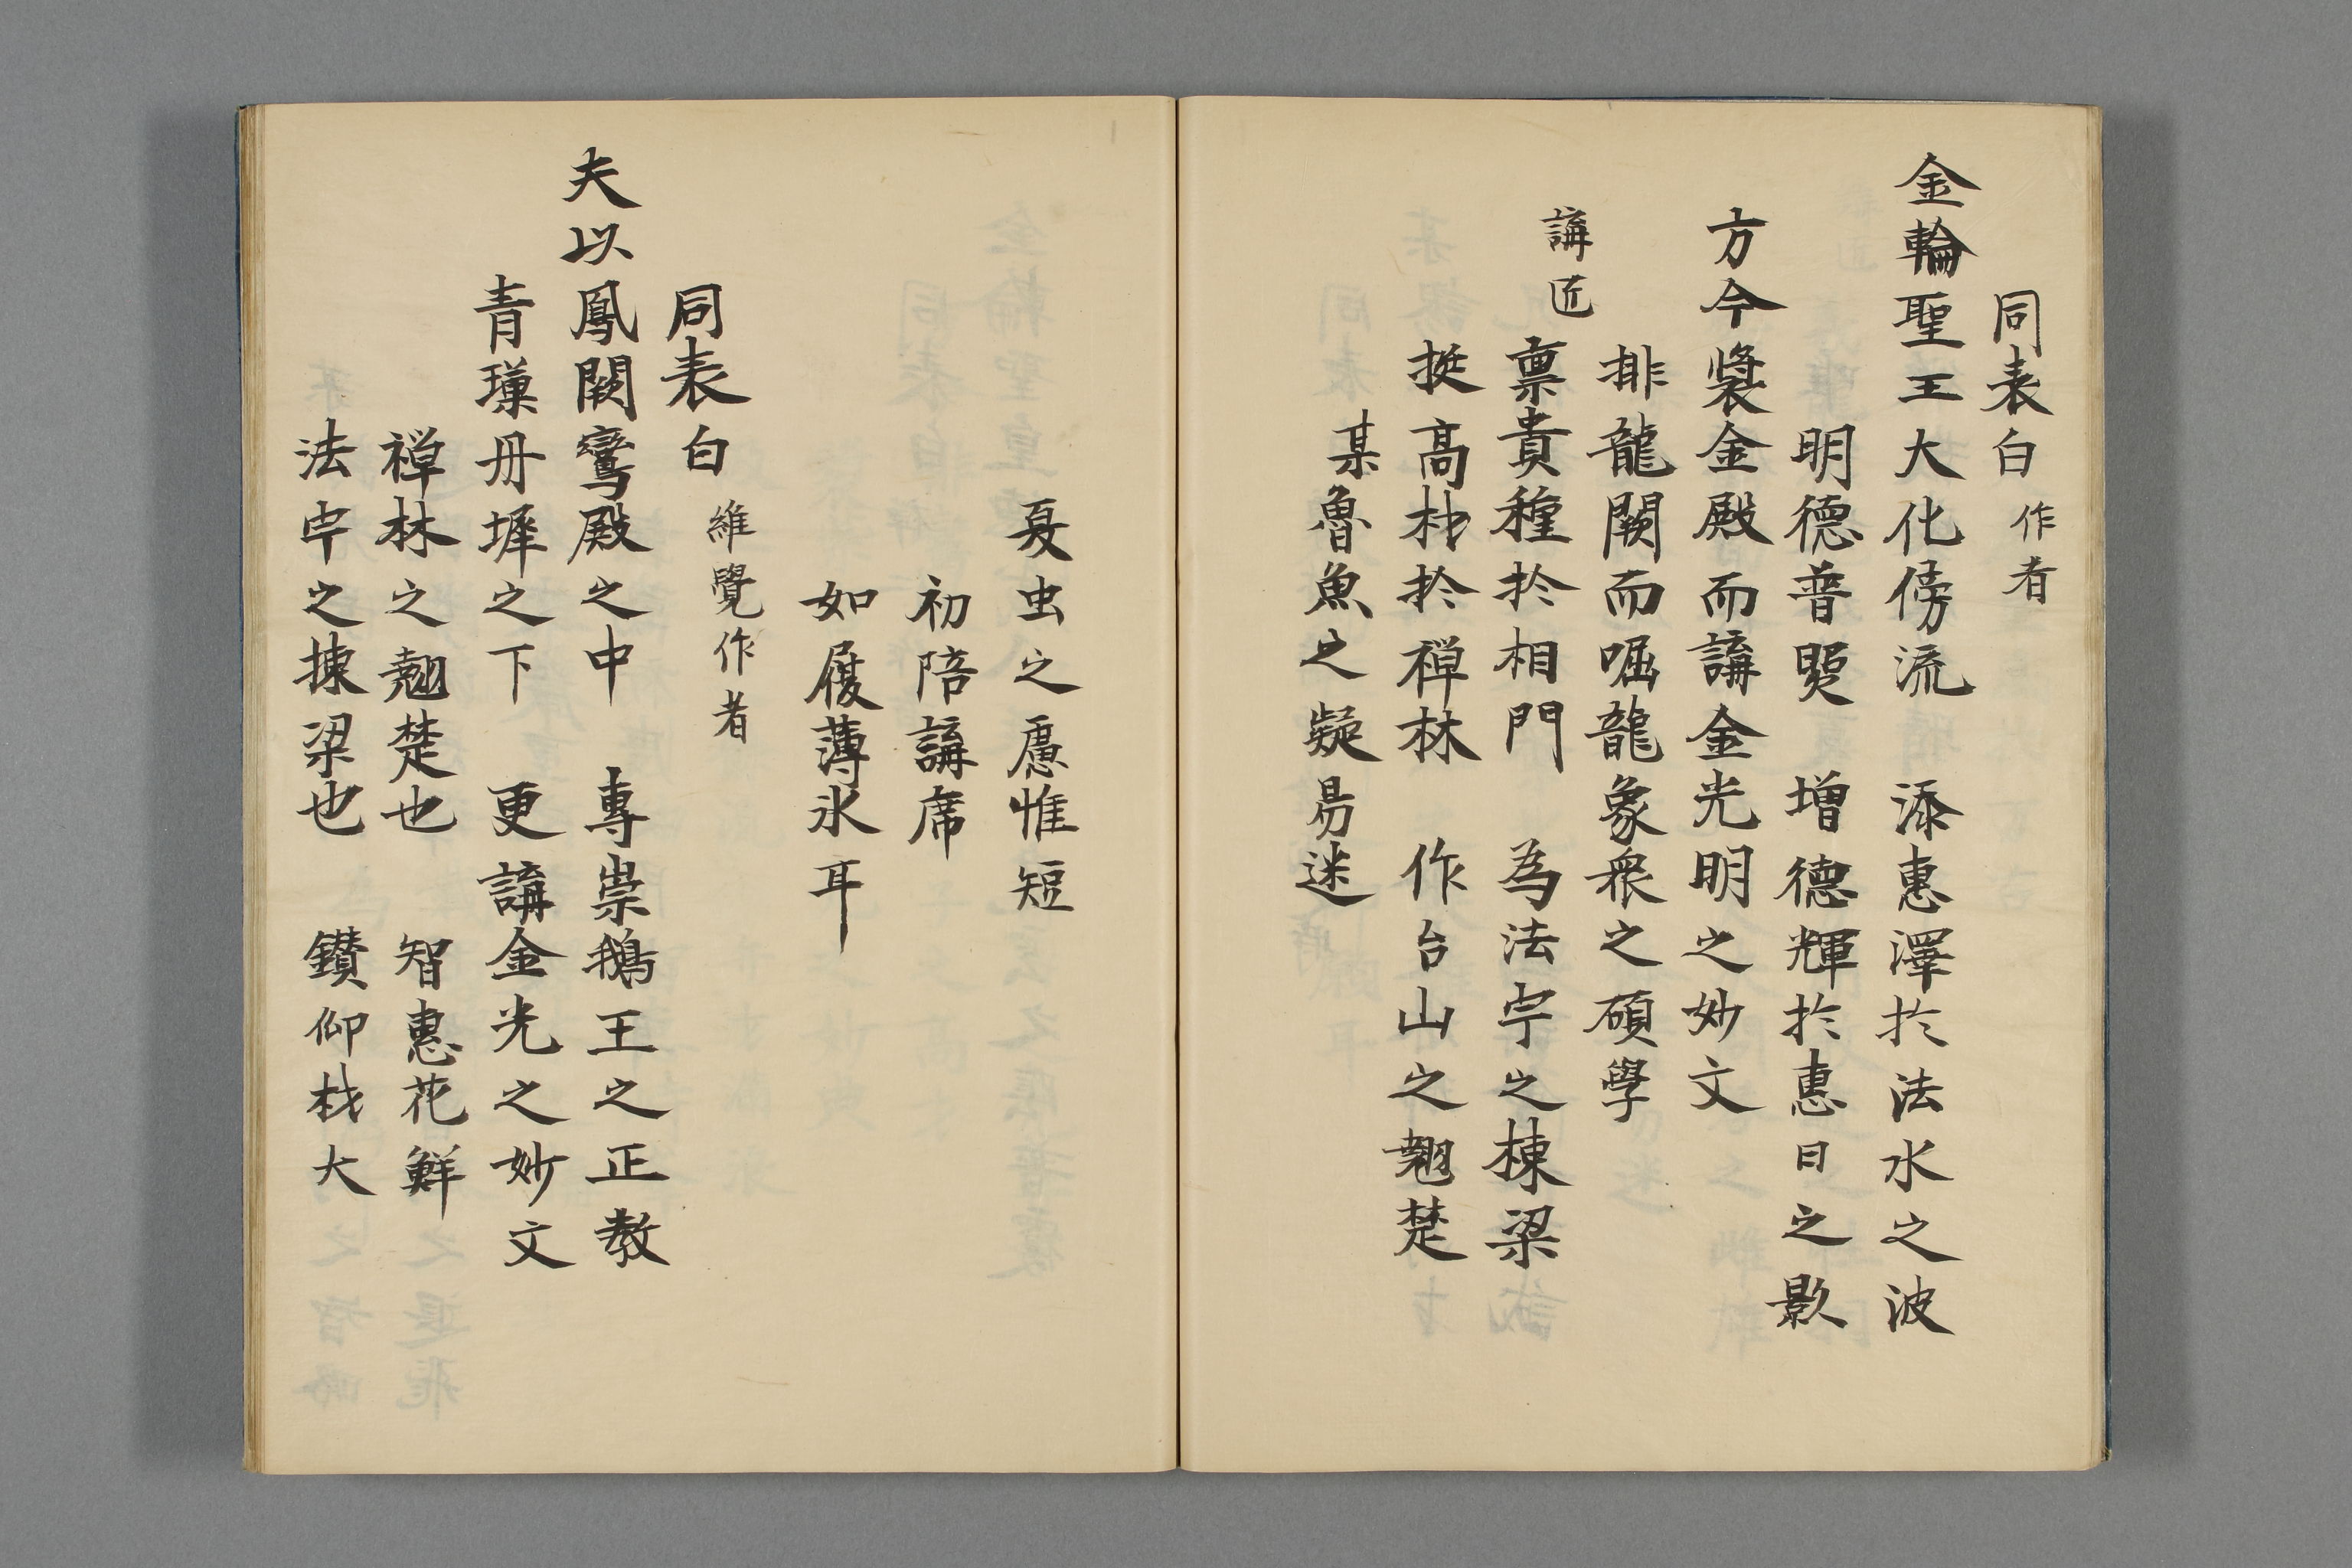 同表白 作者
金輪聖王大化傍流 添惠澤於法水之波
明德普照 増德輝於惠日之影
方今粧金殿而講金光明之妙文
排龍闕而啒龍象衆之碩學
講匠
禀貴種於相門 為法宇之棟梁
挺高材於禅林 作台山之翹楚
某魯魚之疑易迷
夏虫之慮惟短
初陪講席
如履薄氷耳
同表白 維覺作者
夫以鳳闕鸞殿之中 專崇鵝王之正教
青璅丹墀之下 更講金光之妙文
禅林之翹楚也 智惠花鮮
法宇之棟梁也 鑚仰枝大